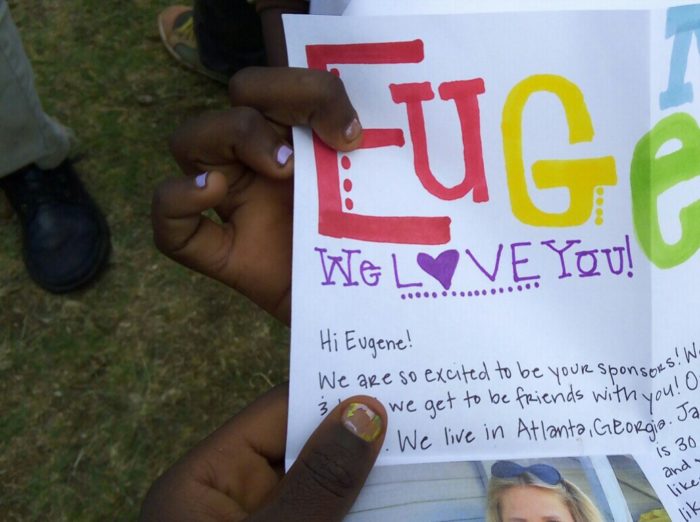 EUGene
We LOVE You!
Hi Eugene!
We are so excited to be your sponsors! We
we get to be friends with you!
. We live in Atlanta, Georgia. Ja
is 30
and
like
lik